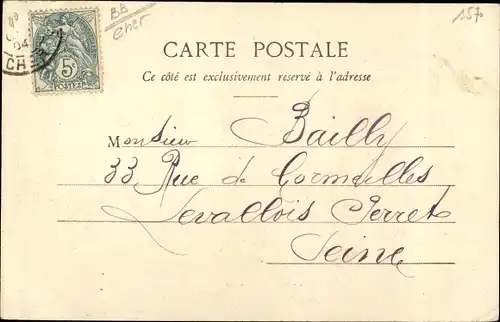 BB
Cher
157
04
CHER
5c
POSTES
CARTE POSTALE
Ce côté est exclusivement réservé à l'adresse
Monsieur Bailly
33 Rue de Cormeilles
Levallois Perret
Seine